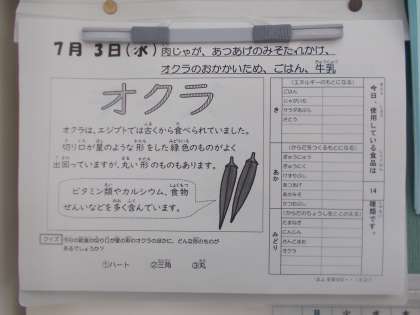 7月 3日(水) 肉じゃが、あつあげのみそだれかけ、
オクラのおかかいため、ごはん、牛乳
オクラ
オクラは、エジプトでは古くから食べられていました。
切り口が星のような形をした緑色のものがよく
出回っていますが、丸い形のものもあります。
ビタミン類やカルシウム、食物
せんいなどを多く含んでいます。
クイズ 今日の給食の切り口が星の形のオクラのほかに、どんな形のものが
あるでしょうか?
①ハート ②三角 ③丸
今日、使用している食品は
14
種類です。
き
(エネルギーのもとになる)
ごはん
じゃがいも
さとう
あか
(からだをつくるもとになる)
ぎゅうにゅう
ぎゅうにく
あつあげ
あかみそ
かつおぶし
みどり
(からだのちょうしをととのえる)
たまねぎ
にんじん
オクラ